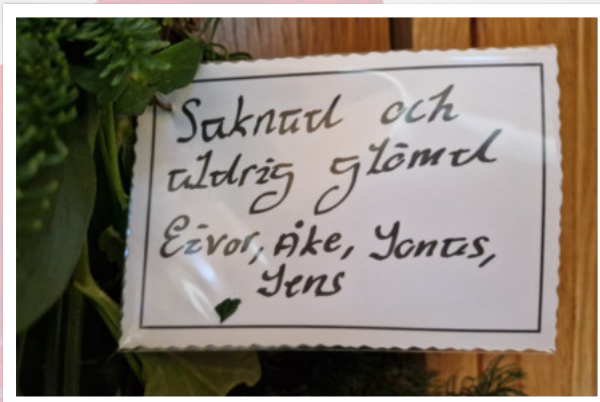 Saknad och
aldrig glömd
Eivor, Åke, Jonas,
Jens